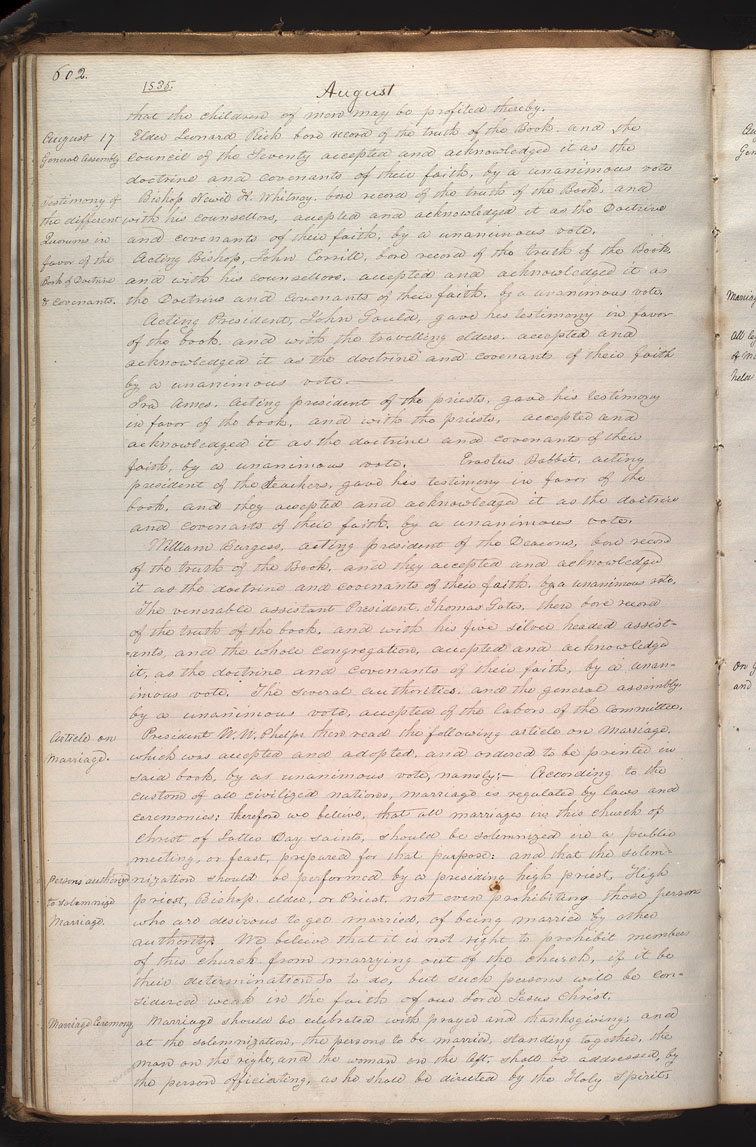 602.
1835.
August
that the children of men may be profited thereby.
August 17
Elder Leonard Rich bore record of the truth of the Book. and the
General Assembly
council of the Seventy accepted and acknowledged it as the
doctrine and covenants of their faith, by a unanimous vote
Testimony of
Bishop Newel K. Whitney. bore record of the truth of the Book, and
the different
with his counsellors, accepted and acknowledged it as the Doctrine
Quorums in
and covenants of their faith, by a unanimous vote.
favor of the
Acting Bishop, John Corrill, bore record of the truth of the Book
Book of Doctrine
and with his counsellors. accepted and acknowledged it as
& Covenants.
the Doctrine and Covenants of their faith. by a unanimous vote.
Acting President, John Gould, gave his testimony in favor
of the book. and with the travelling elders. accepted and
acknowledged it as the doctrine and covenants of their faith
by a unanimous vote.
Ira Ames. acting president of the priests, gave his testimony
in favor of the book. and with the priests, accepted and
acknowledged it as the doctrine and covenants of their
faith, by a unanimous vote. Erastus Babbit, acting
president of the teachers, gave his testimony in favor of the
book, and they accepted and acknowledged it as the doctrine
and covenants of their faith, by a unanimous vote.
William Burgess, acting president of the Deacons, bore record
of the truth of the Book. and they accepted and acknowledged
it as the doctrine and covenants of their faith. by a unanimous vote.
The venerable assistant President, Thomas Gates, then bore record
of the truth of the book, and with his five silver headed assist-
-ants, and the whole congregation, accepted and acknowledged
it, as the doctrine and covenants of their faith, by a unan-
imous vote. The several authorities. and the general assembly.
by a unanimous vote, accepted of the labors of the committee.
Article on
Marriage.
President W. W. Phelps then read the following article on Marriage.
which was accepted and adopted. and ordered to be printed in
said book, by a unanimous vote, namely:— According to the
custom of all civilized nations, marriage is regulated by laws and
ceremonies: therefore we believe. that all marriages in this church of
Christ of Latter Day Saints, should be solemnized in a public
meeting, or feast, prepared for that purpose: and that the solem-
Persons authorized
nization should be performed by a presiding high priest, High
to solemnize
priest, Bishop. elder, or Priest, not even prohibiting those person
Marriage.
who are desirous to get married, of being married by other
authority. We believe that it is not right to prohibit members
of this church from marrying out of the church, if it be
their determination so to do, but such persons will be con-
sidered weak in the faith of our Lord Jesus Christ.
Marriage Ceremony.
Marriage should be celebrated with prayer and thanksgiving; and
at the solemnization, the persons to be married, standing together, the
man on the right, and the woman on the left, shall be addressed, by
the person officiating, as he shall be directed by the Holy Spirit;
Marriag
All le
held
On
and